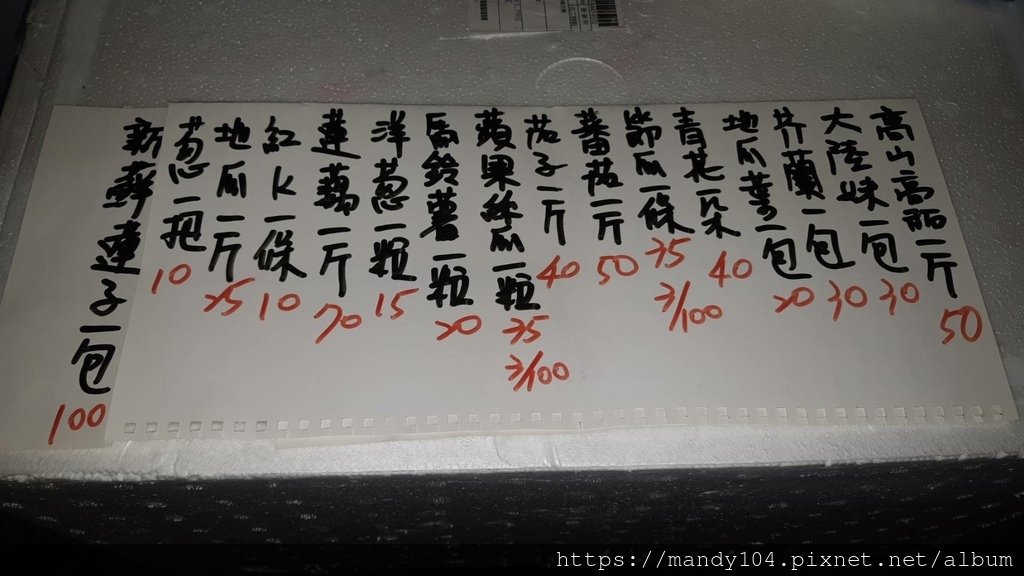 高山高麗一斤 50
大陸妹一包 30
芥蘭一包 30
地瓜葉一包 20
青花一朵 40
節瓜一條 35 3/100
蕃茄一斤 50
茄子一斤 40
蘋果絲瓜一粒 35 3/100
馬鈴薯一粒 20
洋葱一粒 15
蓮藕一斤 70
紅K一條 10
地瓜一斤 25
葱一把 10
新鮮蓮子一包 100
https://mandy104.pixnet.net/album